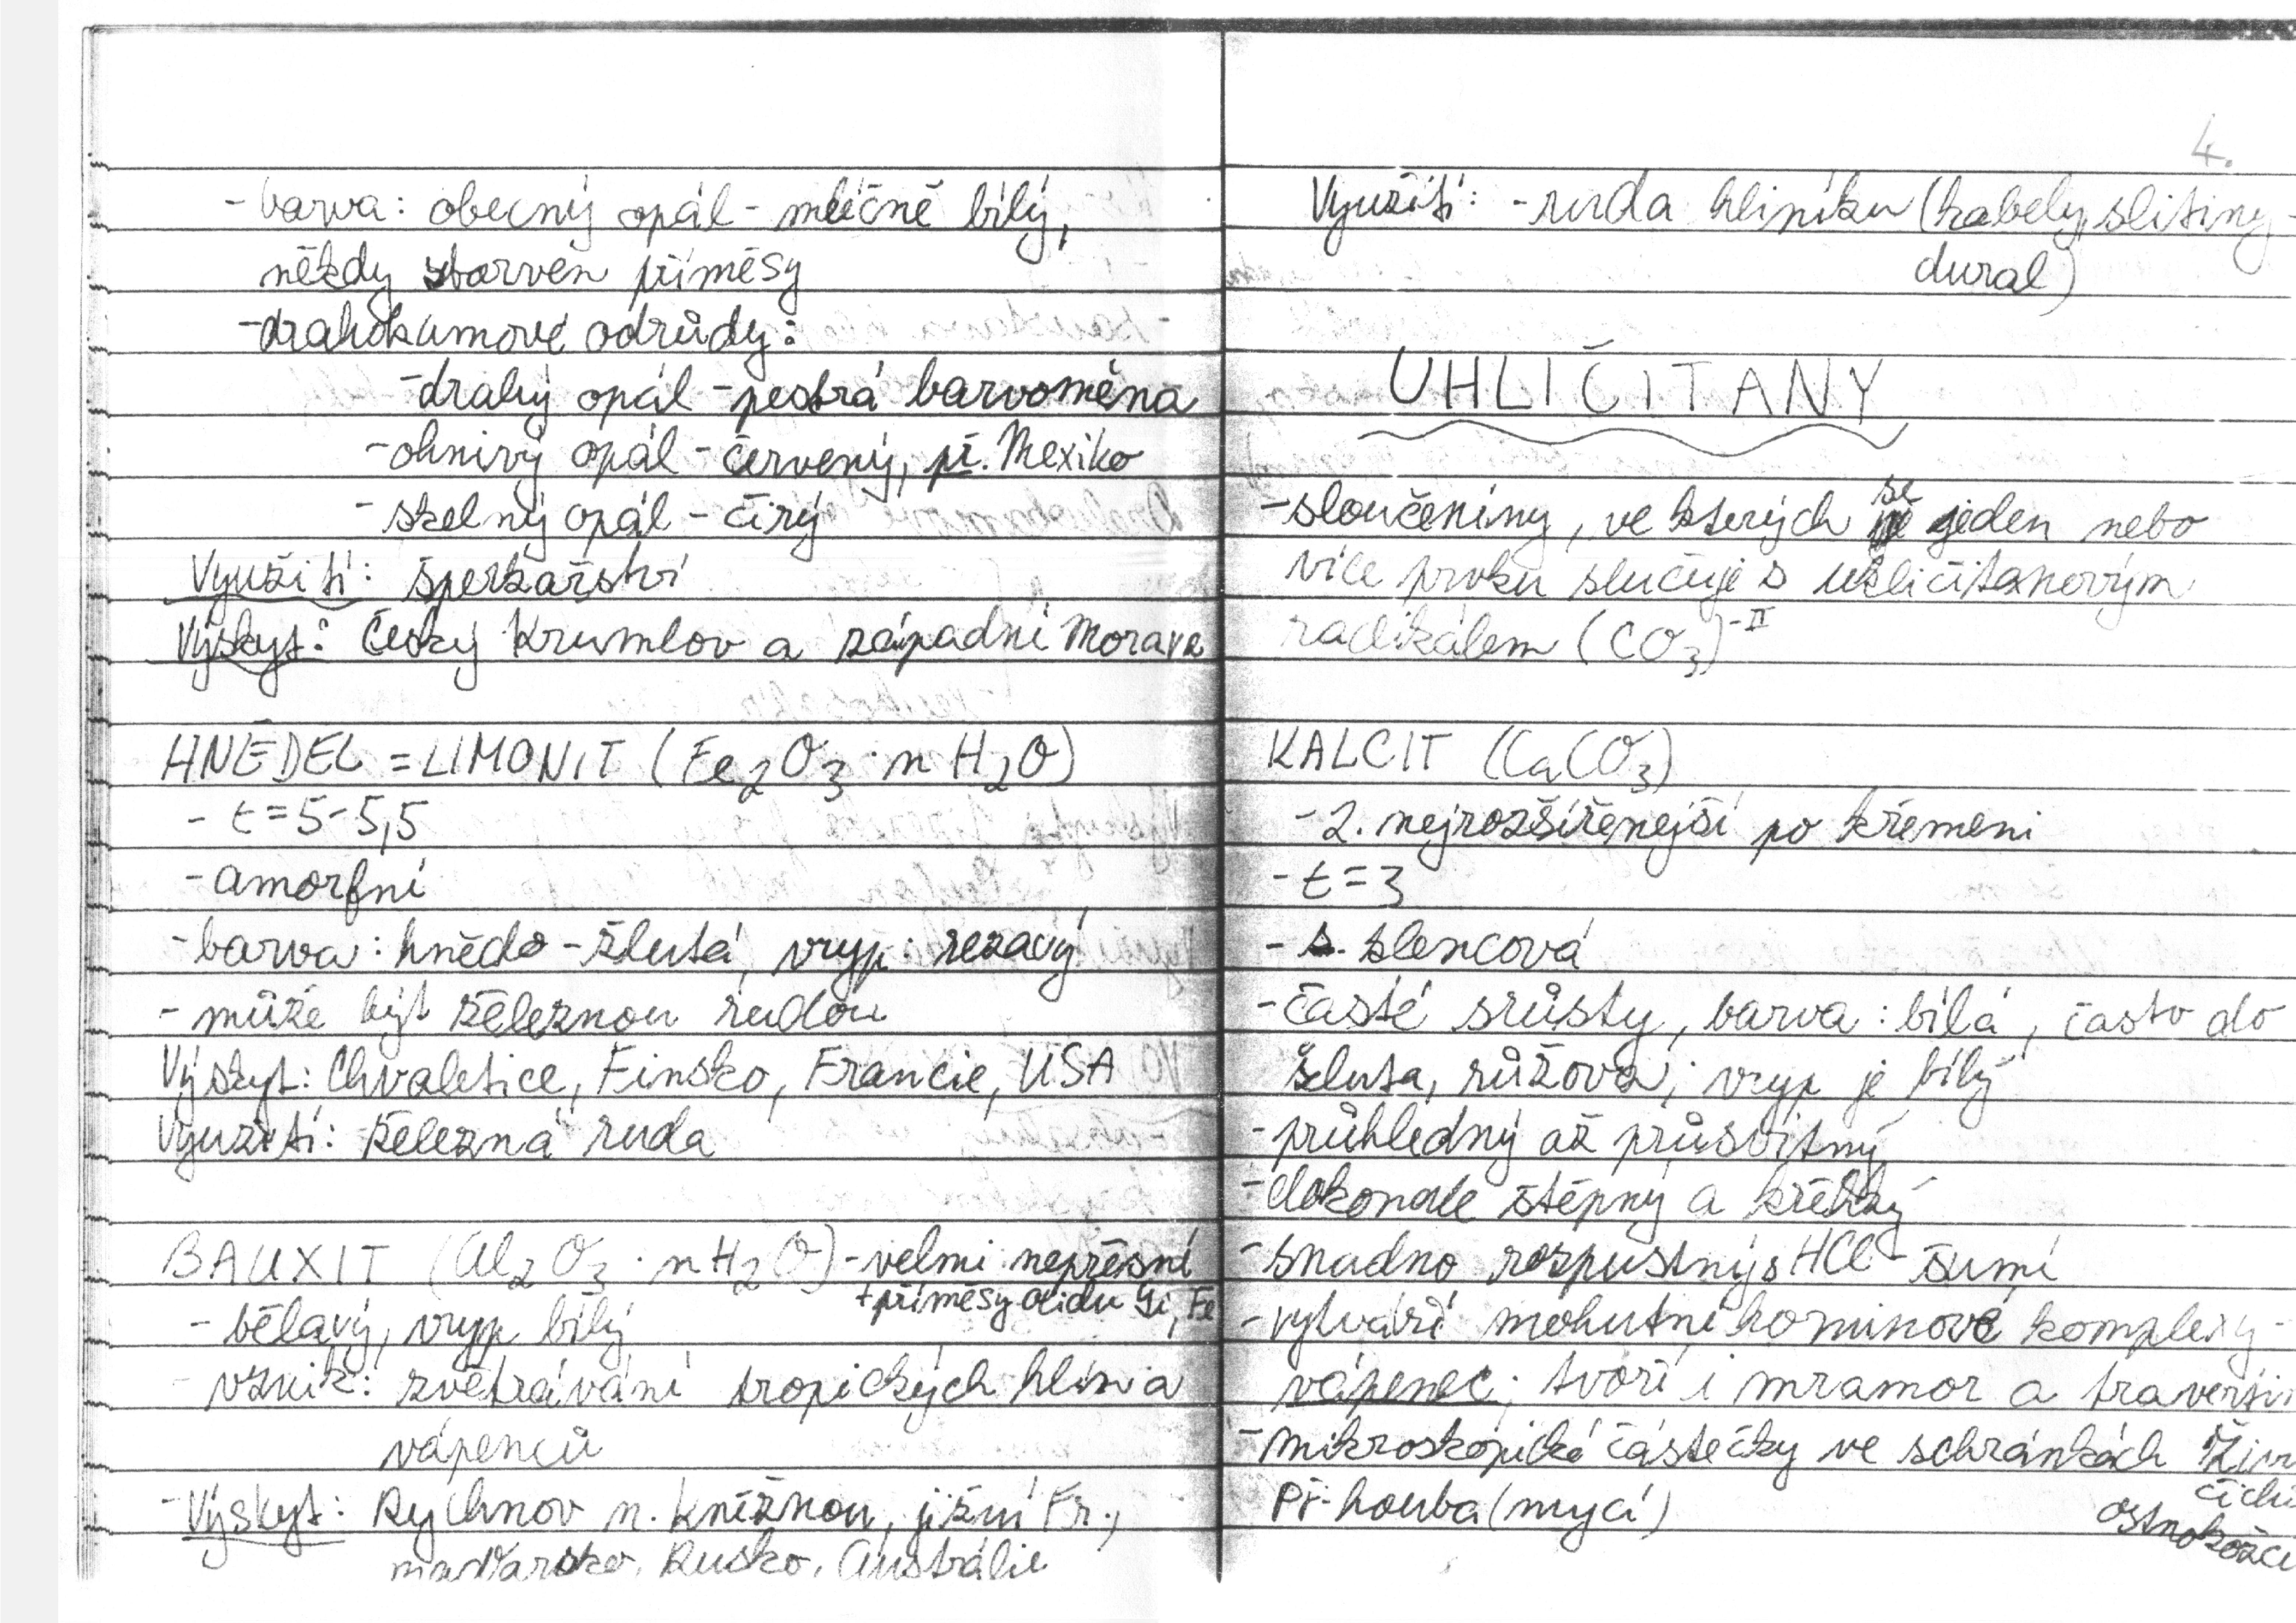 - barva: obecný opál - mléčně bílý,
někdy zbarven příměsy
- drahokamové odrůdy:
- drahý opál - pestrá barvoměna
- ohnivý opál - červený, př. Mexiko
- skelný opál - čirý
Využití: šperkařství
Výskyt: Český Krumlov a západní Morava
HNĚDEL = LIMONIT (Fe2O3 · n H2O)
- t = 5 - 5,5
- amorfní
- barva: hnědo - žlutá, vryp: rezavý
- může být železnou rudou
Výskyt: Chvaletice, Finsko, Francie, USA
Využití: železná ruda
BAUXIT (Al2O3 · nH2O) - velmi nepřesné
+ příměsy oxidu Si, Fe
- bělavý, vryp bílý
- vznik: zvětrávání tropických hlín a
vápenců
- Výskyt: Rychnov n. kněžnou, jižní Fr.,
maďarsko, Rusko, Austrálie
4.
Využití: - ruda hliníku (kabely, slitiny -
dural)
UHLIČITANY
- sloučeniny, ve kterých se jeden nebo
více prvku slučuje s uhličitanovým
radikálem (CO3)-II
KALCIT (CaCO3)
- 2. nejrozšířenější po křemeni
- t = 3
- s. klencová
- časté srůsty, barva: bílá, často do
žluta, růžova; vryp je bílý
- průhledný až průsvitný
- dokonale štěpný a křehký
- snadno rozpustný s HCl - šumí
- vytváří mohutné horninové komplexy -
vápenec; tvoří i mramor a travertin
- mikroskopické částečky ve schránkách živo
čichů
Př - houba (mycí)
ostnokožci